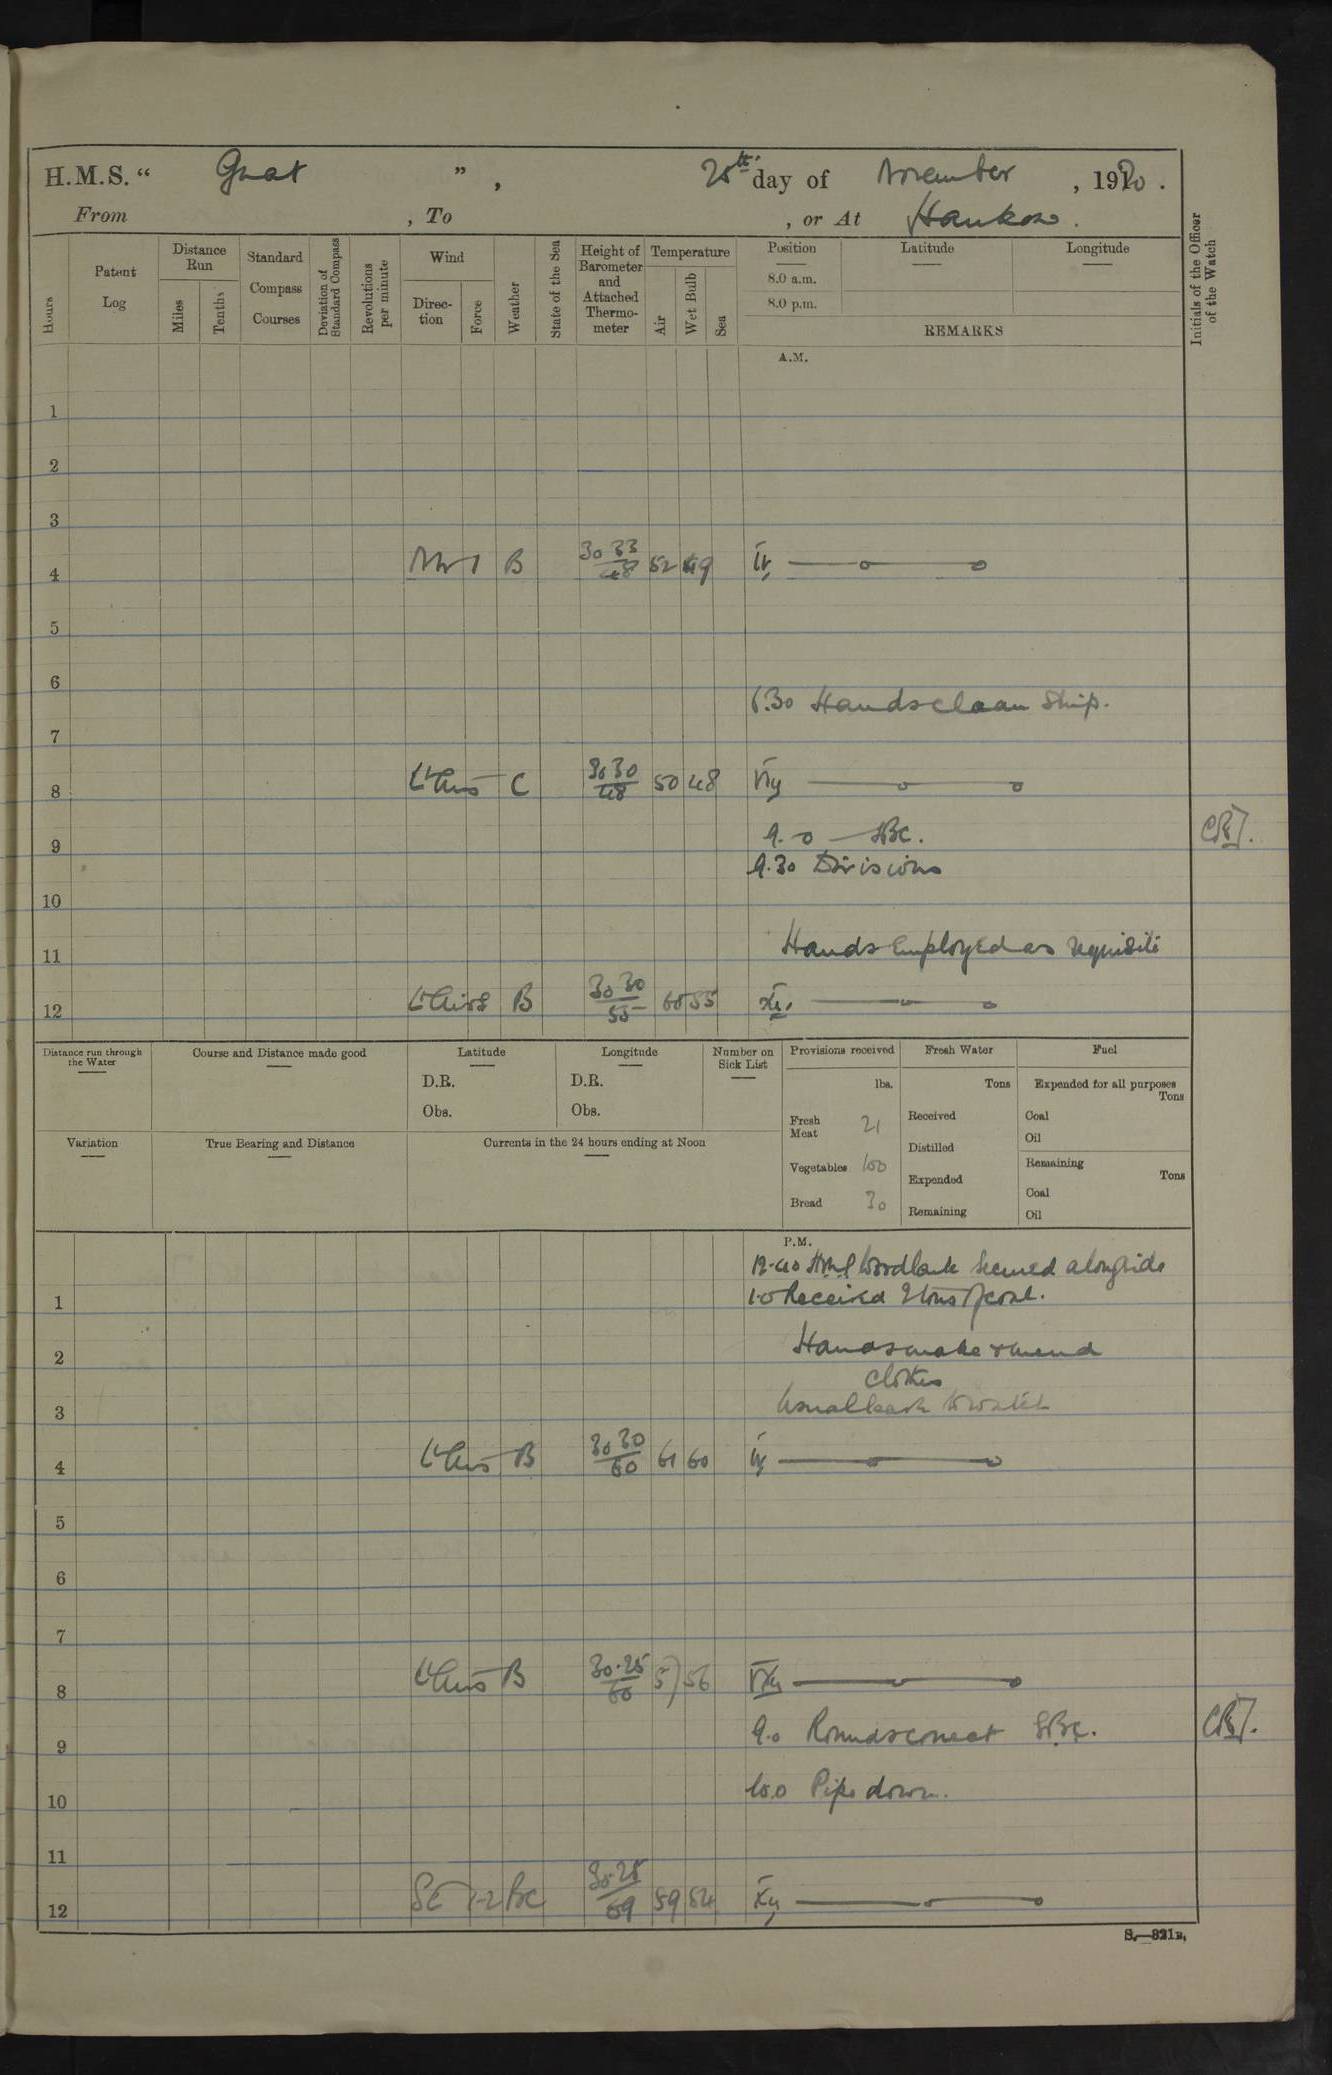 H.M.S. " Gnat " , 25th day of November , 1920 .
From , To , or At Hankow .
Hours
Patent Log
Distance Run
Miles
Tenths
Standard Compass Courses
Deviation of Standard Compass
Revolutions per minute
Wind
Direction
Force
Weather
State of the Sea
Height of Barometer and Attached Thermometer
Temperature
Air
Wet Bulb
Sea
Position
Latitude
Longitude
8.0 a.m.
8.0 p.m.
REMARKS
Initials of the Officer of the Watch
A.M.
1
2
3
4 B 30 33 / 48 52 49
5
6
6.30 Hands clean Ship.
7
8 Lt Airs C 30 30 / 48 50 48
9.0
9
9.30 Divisions
10
Hands employed as requisite
11
12 Lt Airs B 30 30 / 55 60 55
Distance run through the Water
Course and Distance made good
Latitude
D.R.
Obs.
Longitude
D.R.
Obs.
Number on Sick List
Provisions received
lbs.
Fresh Meat 21
Vegetables 100
Bread 30
Fresh Water
Tons
Received
Distilled
Expended
Remaining
Fuel
Expended for all purposes
Tons
Coal
Oil
Remaining
Tons
Coal
Oil
Variation
True Bearing and Distance
Currents in the 24 hours ending at Noon
P.M.
12.40 HMS Woodlark Secured alongside
1.0 Received 2 tons of coal.
1
Hands make & mend
2
clothes
Usual leave to watch
3
4 Lt Airs B 30 30 / 60 61 60
5
6
7
8 Lt Airs B 30.25 / 60 57 56
9.0 Rounds correct
9
10.0 Pipe down.
10
11
12 SE 1-2 BC 30.25 / 59 59 54
S.—321B,